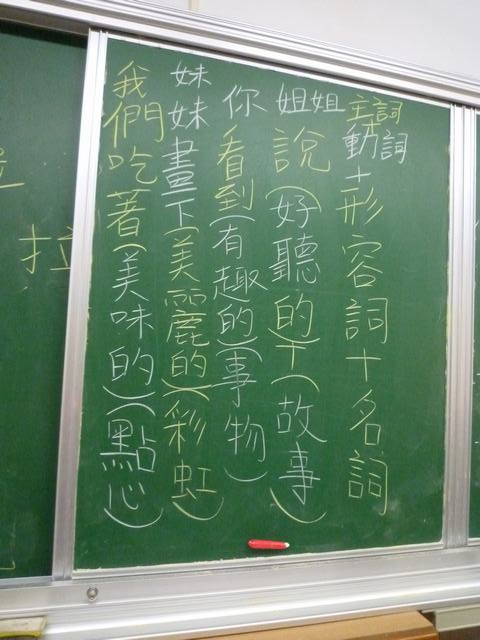 主詞
動詞+形容詞+名詞
姐姐說(好聽的)+(故事)
你看到(有趣的)(事物)
妹妹畫下(美麗的)(彩虹)
我們吃著(美味的)(點心)
拉